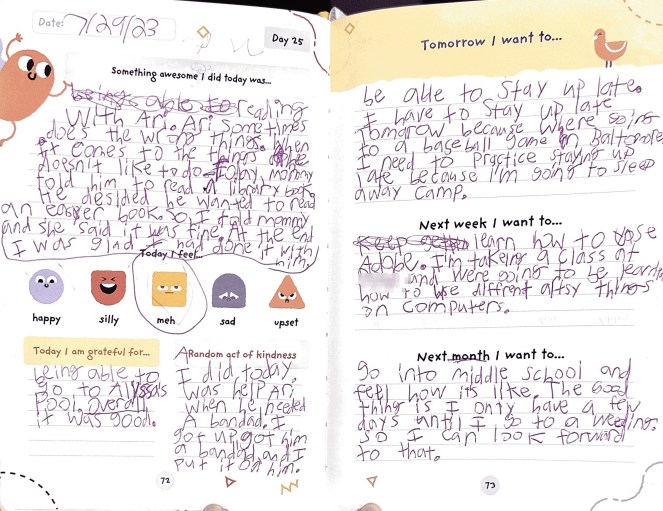 Date: 7/29/23
Day 25
Something awesome I did today was...
being able to reading
With Ari. Ari sometimes
does the wrong things. When
it comes to the things
doesn't like to do. Today, mommy
told him to read a library book.
He desided he wanted to read
an easyer book. So, I told mommy
and she said it was fine. At the end
I was glad I had done it with
him.
Today I feel...
happy
silly
meh
sad
upset
Today I am grateful for...
being able to
go to Alyssa's
Pool. Overall
it was good.
A Random act of kindness
I did today.
Was help Ari
when he needed
A bandad. I
got up, got him
a bandad, and I
put it on him.
72
Tomorrow I want to...
be able to stay up late.
I have to stay up late
Tomorow because where going
to a baseball game in Baltomore.
I need to practice staying up
late because I'm going to sleep
away camp.
Next week I want to...
Keep learn how to use
Adobe. I'm takeing a class at
and were going to be learnin
how to use diffrent artsy things
on computers.
Next month I want to...
go into middle school and
feel how its like. The good
thing is I only have a few
days until I go to a wedding.
So I can look forward
to that.
73